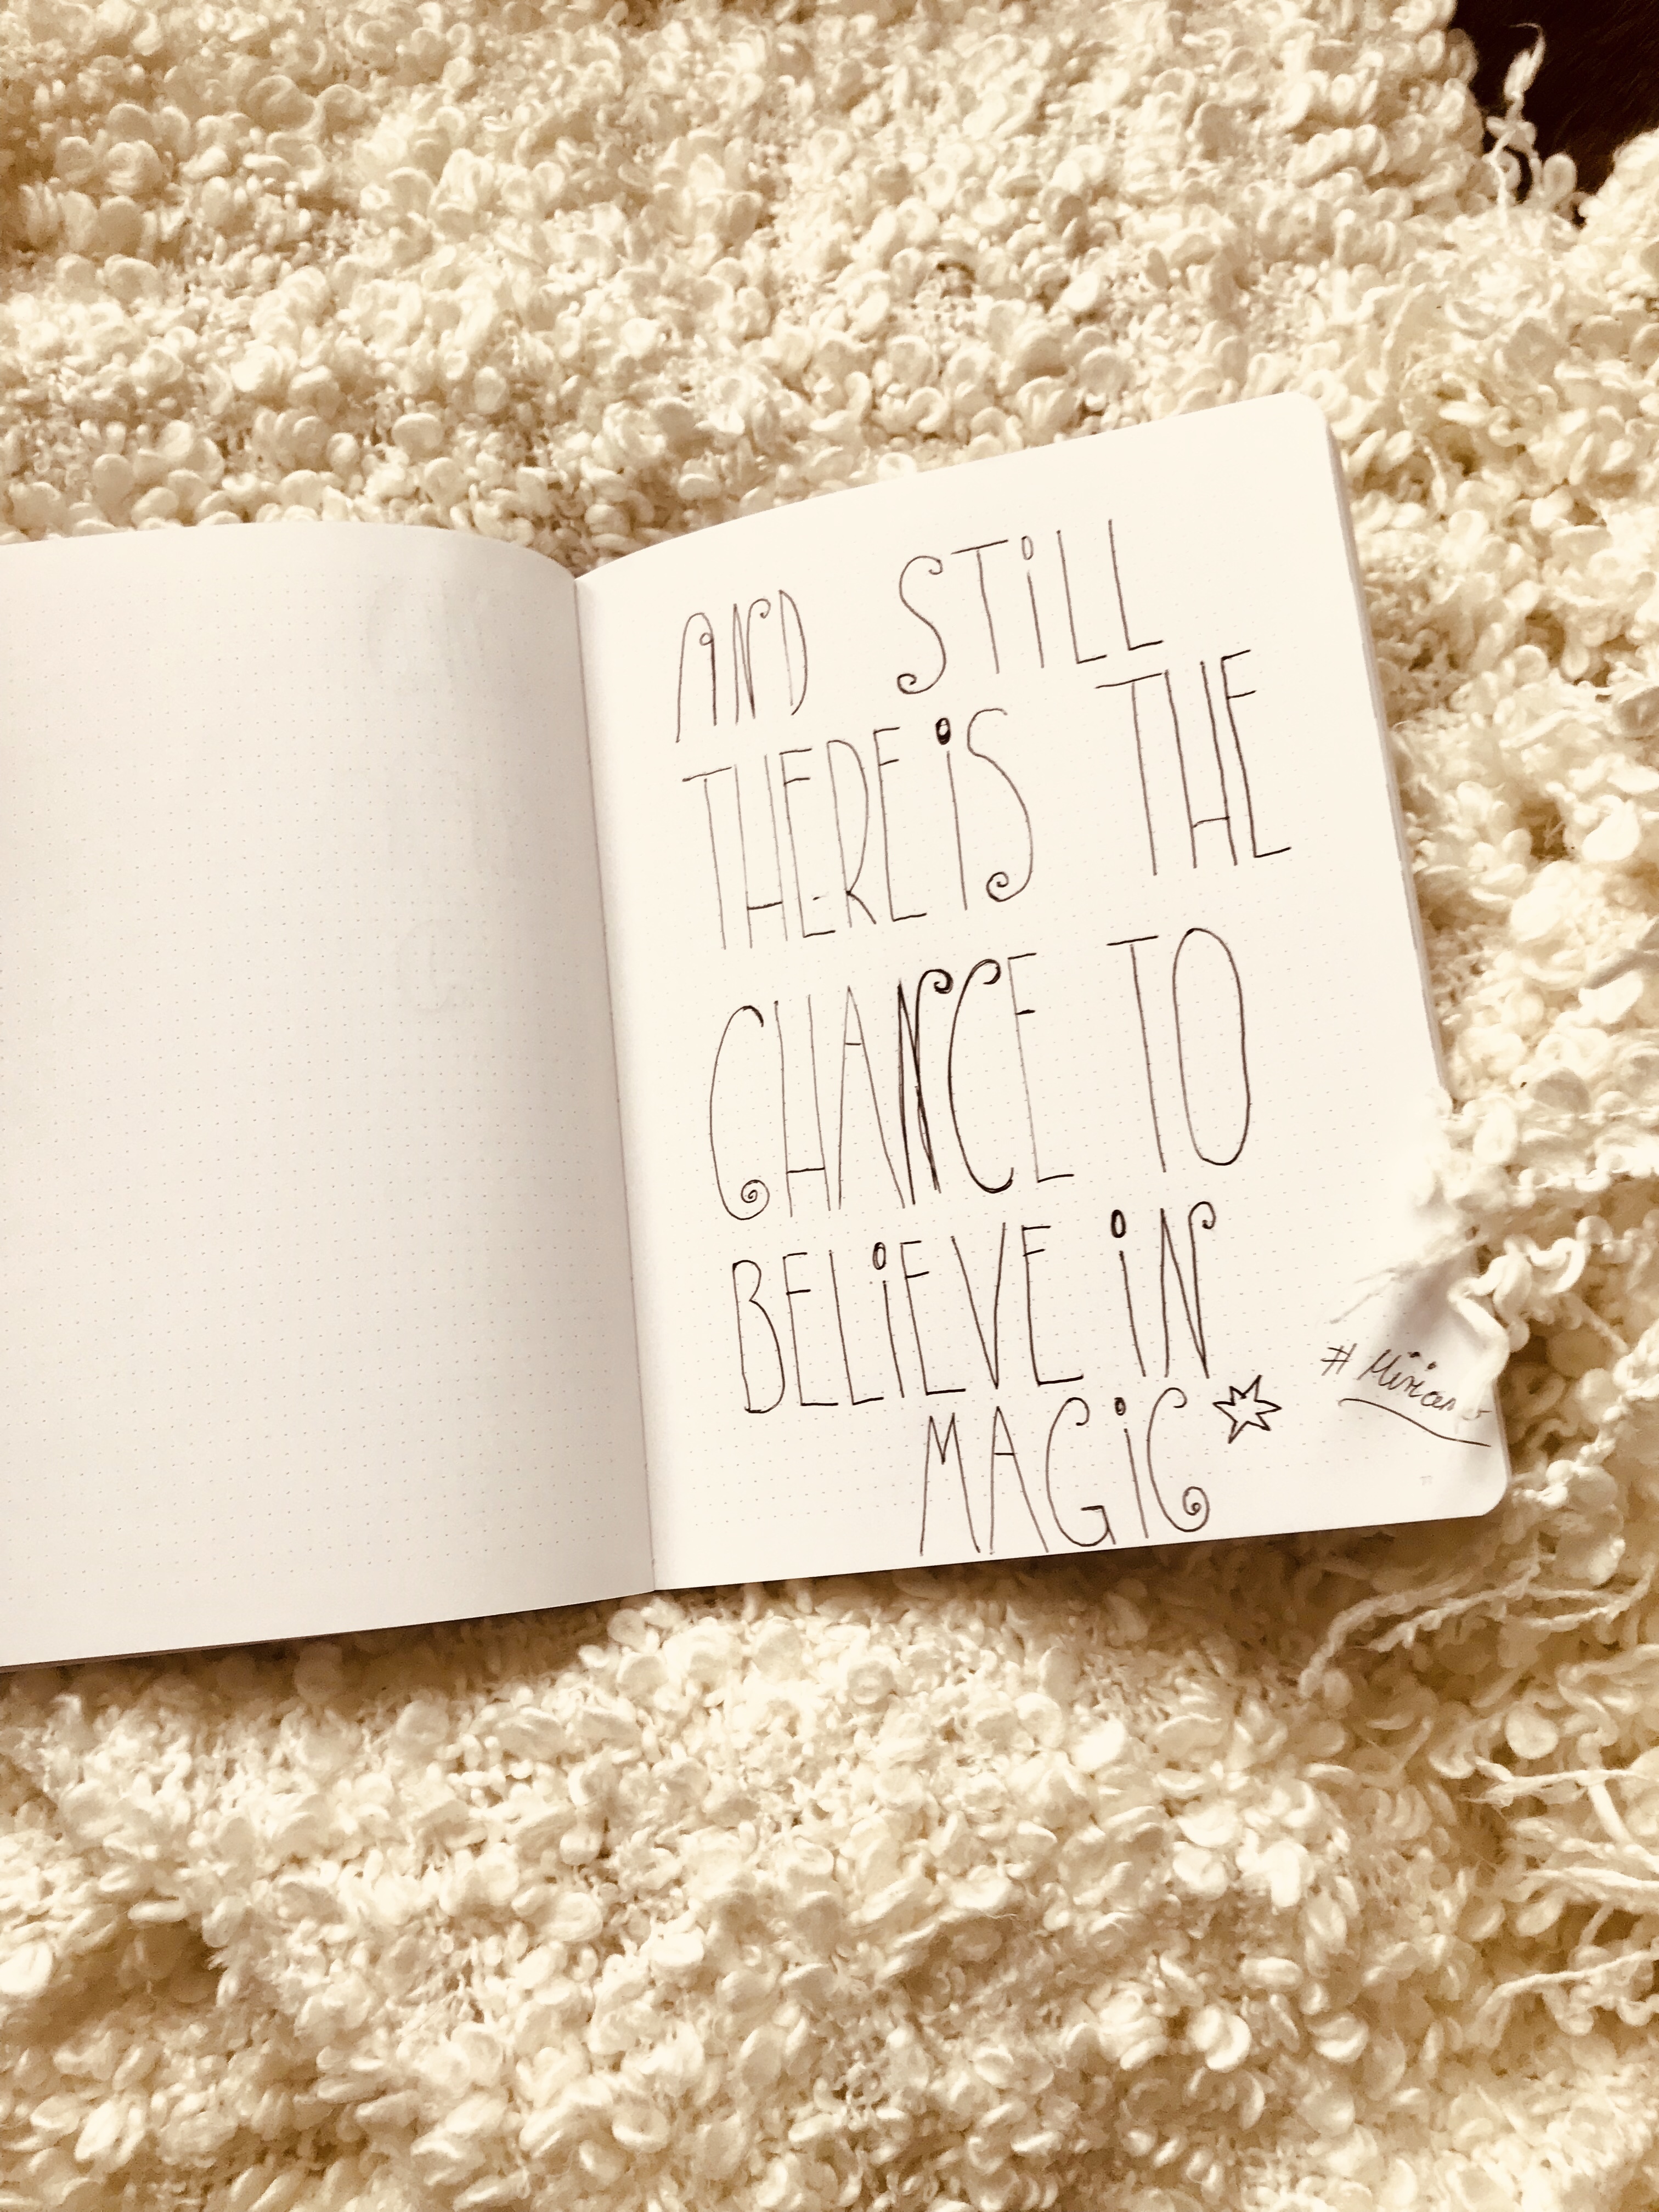 AND STiLL
THERE iS THE
CHANCE TO
BELiEVE iN
MAGiC